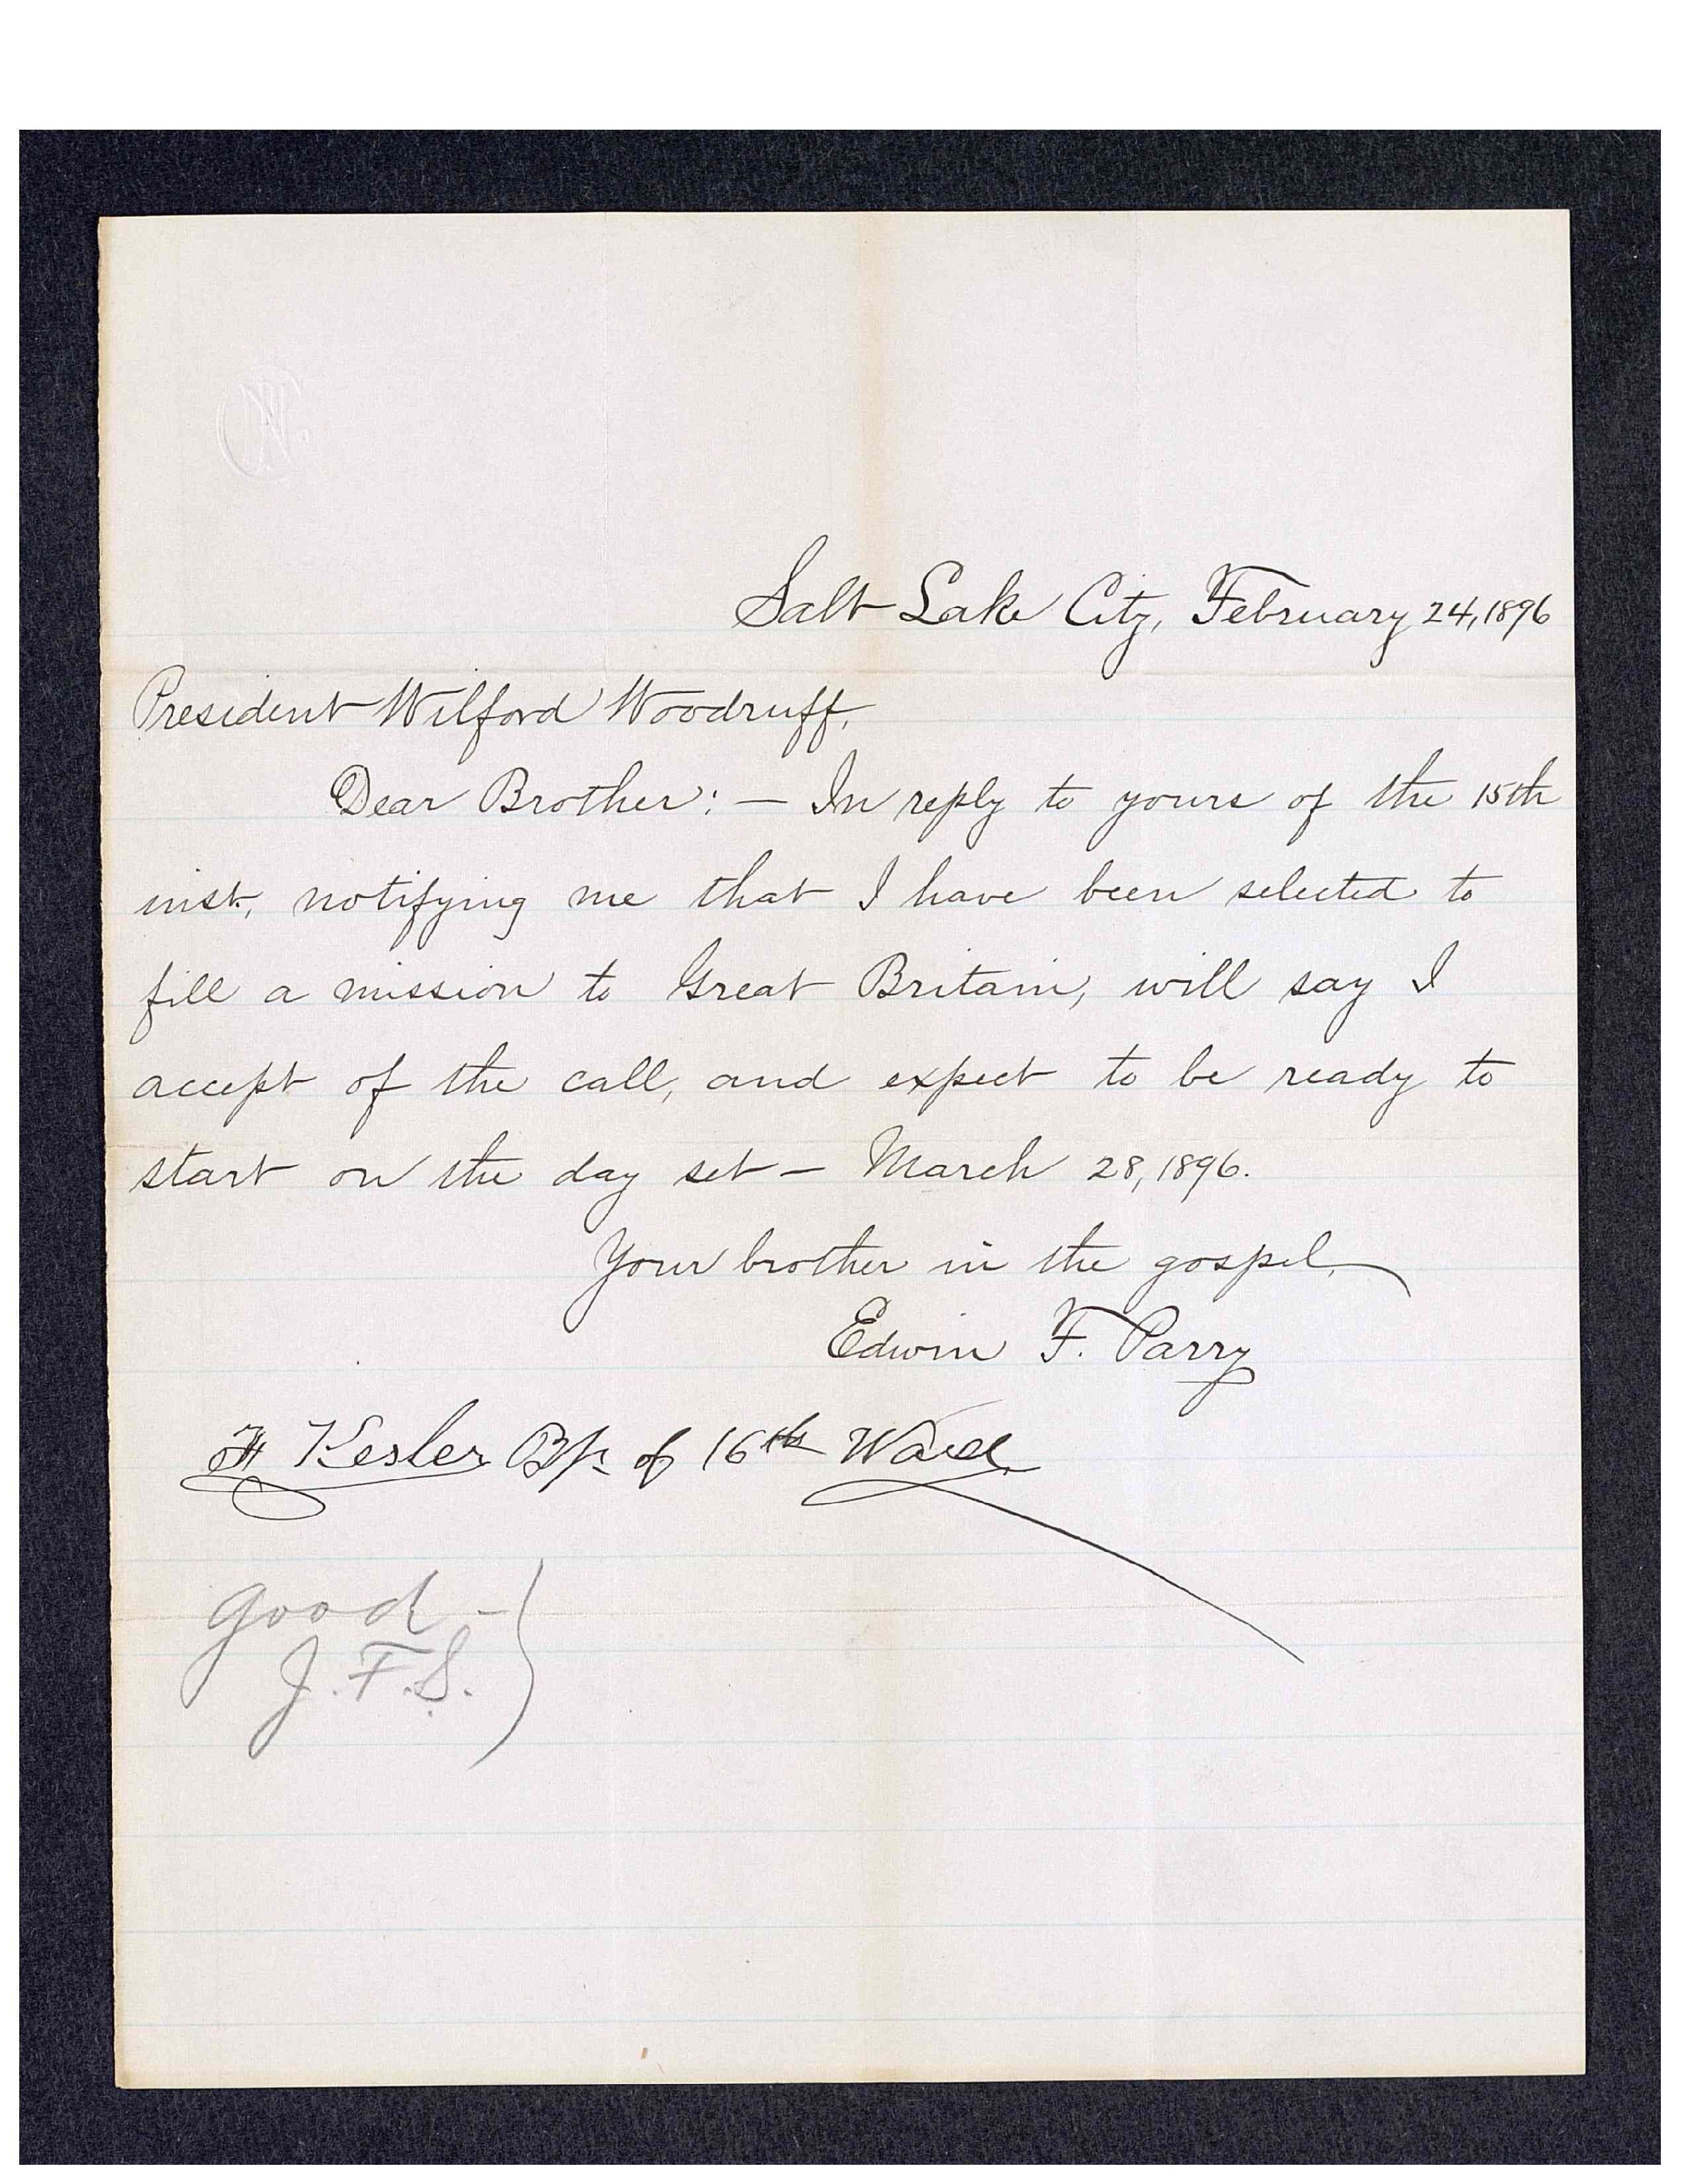 Salt Lake City, February 24, 1896
President Wilford Woodruff,
Dear Brother: — In reply to yours of the 15th
inst, notifying me that I have been selected to
fill a mission to Great Britain, will say I
accept of the call, and expect to be ready to
start on the day set — March 28, 1896.
Your brother in the gospel,
Edwin F. Parry
F Kesler Bp. of 16th Ward
good -
J.F.S.